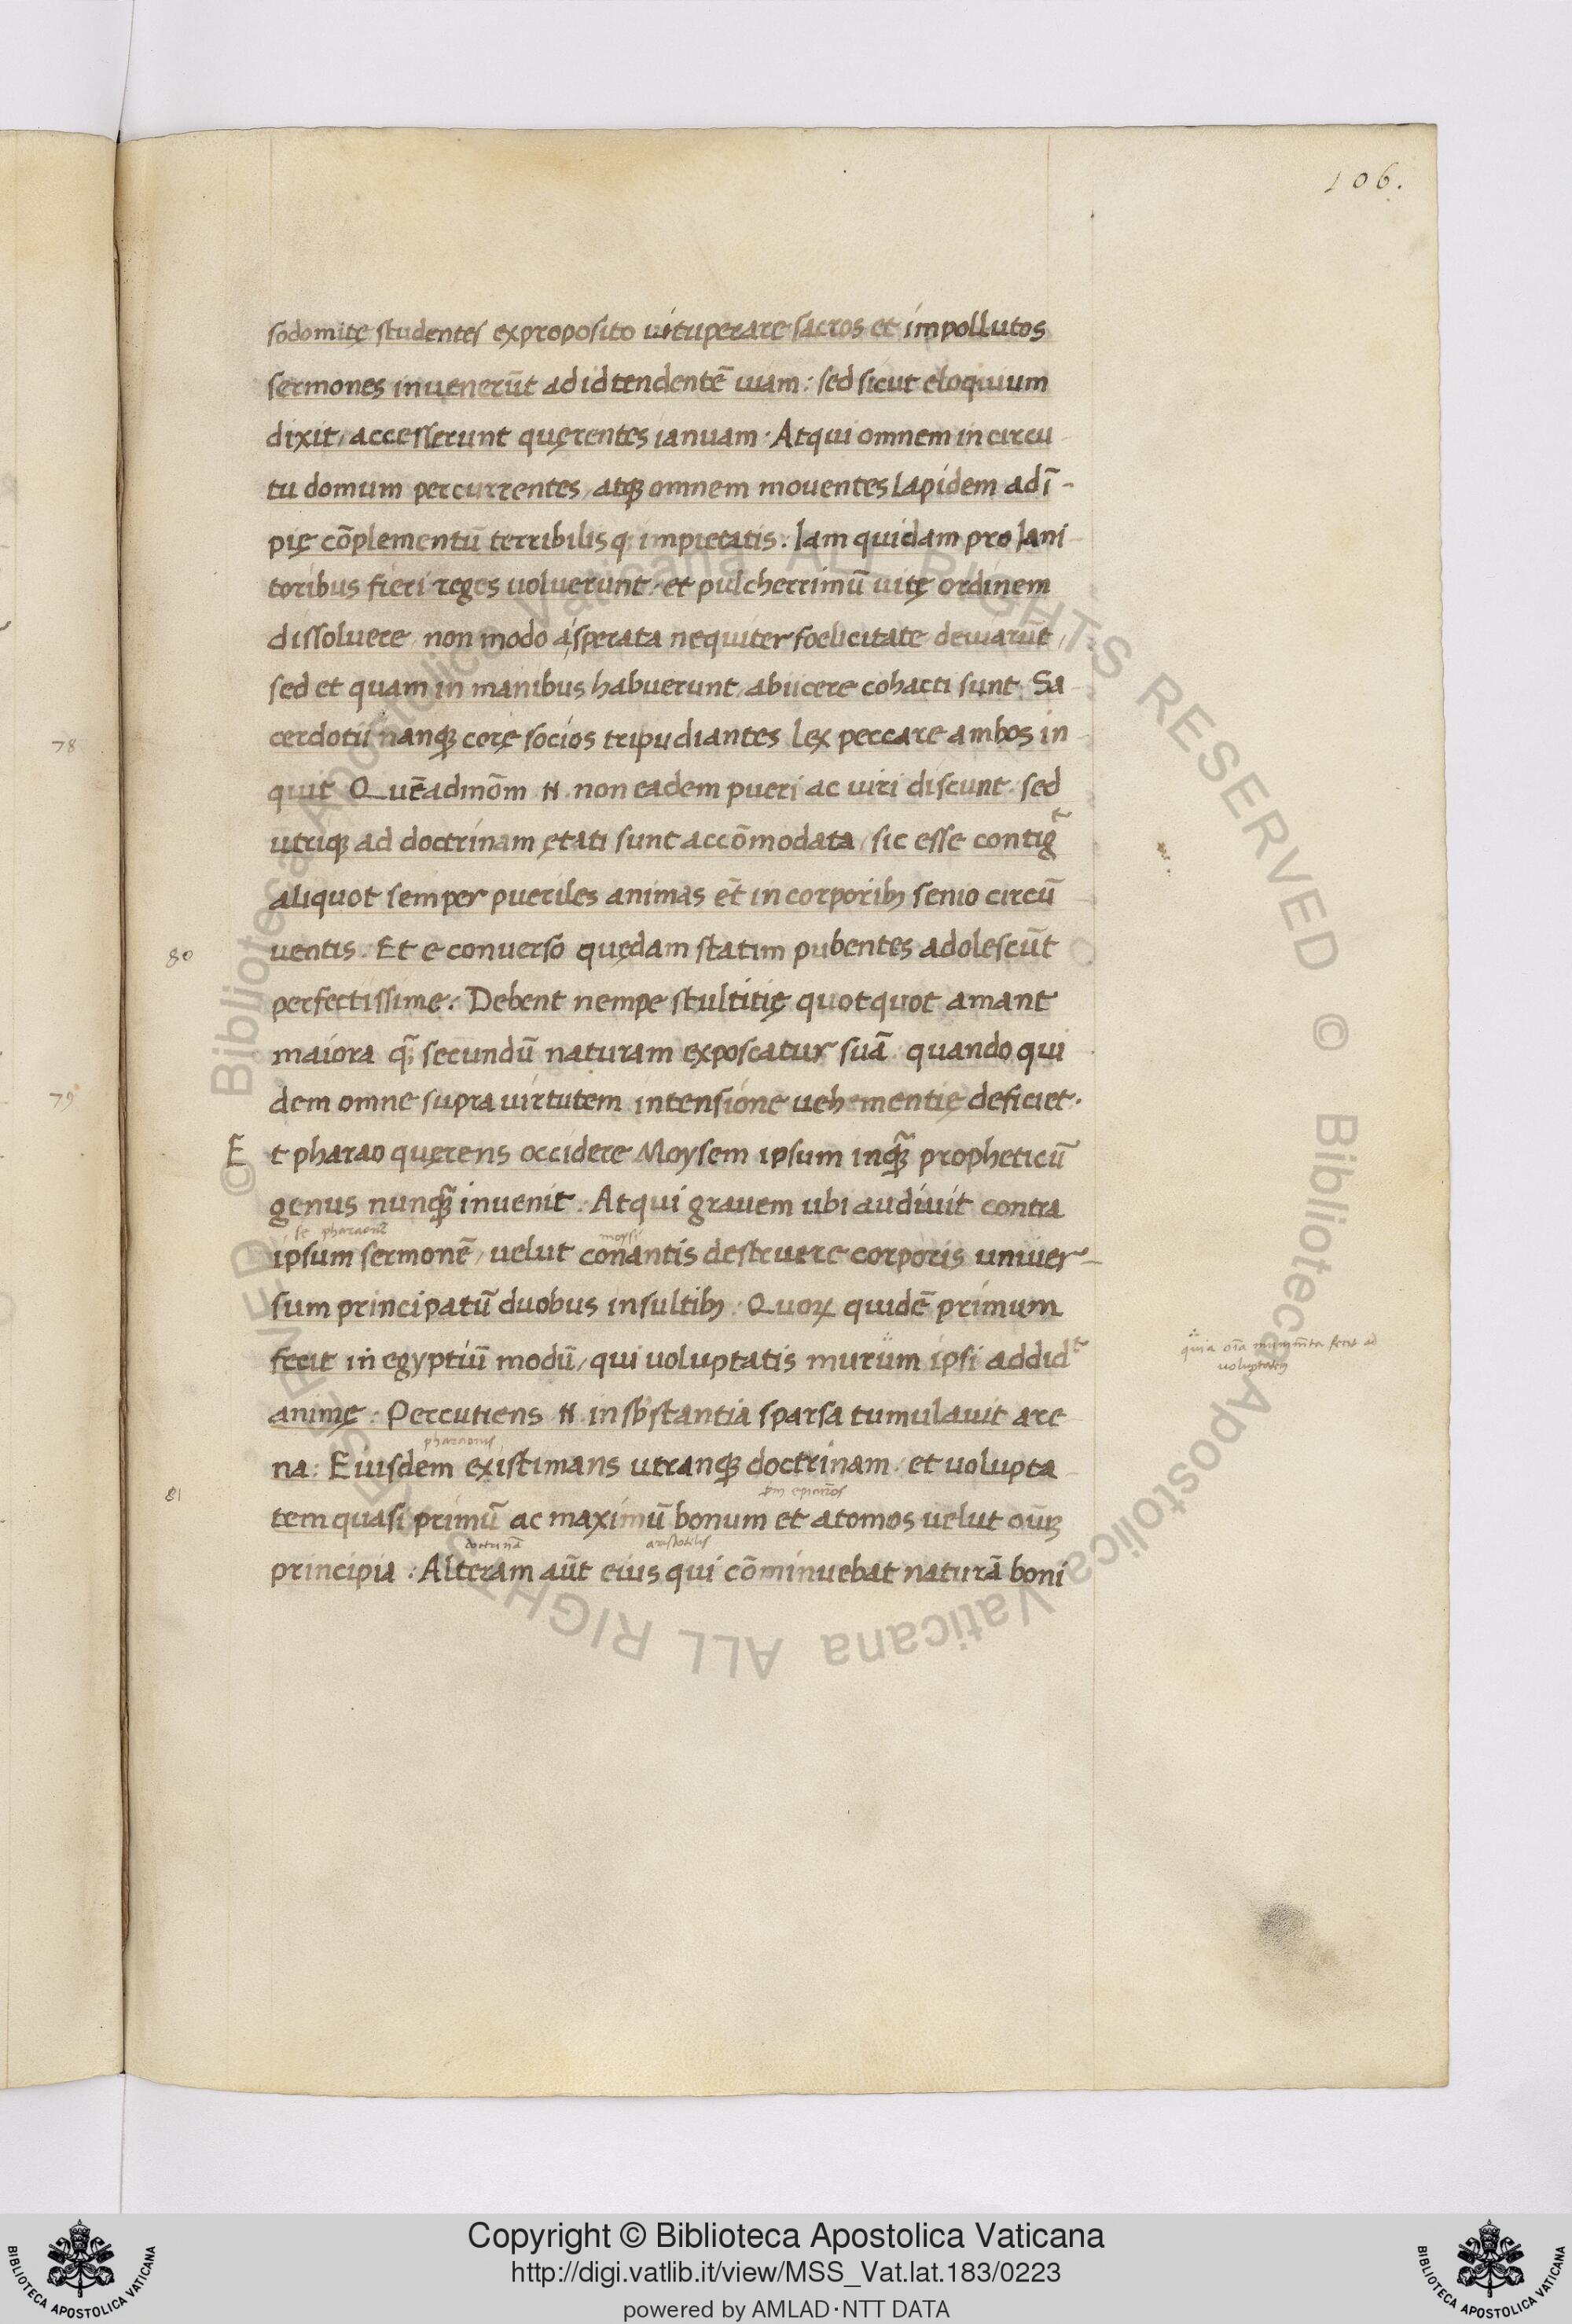 106.
sodomitę studentes exproposito vituperare sacros et impollutos
sermones invenerūt ad id tendentē uiam : sed sicut eloquium
dixit, accesserunt quęrentes ianuam · Atqui omnem in circu
tu domum percurrentes, atqꝫ omnem mouentes lapidem ad ī-
pię cōplementū terribilis qꝫ impietatis : Iam quidam pro Iani
toribus fieri reges voluerunt · et pulcherrimū uitę ordinem
dissoluere, non modo asperata nequiter foelicitate deuiarūt,
sed et quam in manibus habuerunt, abiicere cohacti sunt. Sa
cerdotii nanqꝫ cerę socios tripudiantes Lex peccare ambos in
78
quit Quēadmōm N. non eadem pueri ac uiri discunt · sed
utriqꝫ ad doctrinam ętati sunt accōmodata, sic esse contigᵗ
aliquot semper pueriles animas ēt in corporibꝫ senio circū
80
uentis. Et e converso quędam statim pubentes adolescūt
perfectissime. Debent nempe stultitię quotquot amant
maiora q̄ꝫ secundū naturam exposcatur suā quando qui
dem omne supra virtutem intensione vehementię deficiet.
79
Et pharao quęrens occidere Moysem ipsum inqꝫ̄ propheticū
genus nunqꝫ̄ invenit. Atqui grauem ubi audiuit contra
se pharaonē moysi
ipsum sermonē, velut conantis destruere corporis univer-
sum principatū duobus insultibꝫ. Quoꝝ quidē primum
fecit in egyptiū modū, qui voluptatis murum ipsi addidᵗ
quia oīa
voluptatē
animę : Percutiens N. in sb̄stantia sparsa tumulauit are
pharaonis
na : Eiusdem existimans utranqꝫ doctrinam · et volupta
81
tem quasi primū ac maximū bonum et atomos uelut oīuꝫ
doctrinā aristotilis
principia : Alteram aūt eius qui cōminuebat naturā boni
© Biblioteca Apostolica Vaticana ALL RIGHTS RESERVED © Biblioteca Apostolica Vaticana ALL RIGHTS RESERVED
Copyright © Biblioteca Apostolica Vaticana
http://digi.vatlib.it/view/MSS_Vat.lat.183/0223
powered by AMLAD·NTT DATA
BIBLIOTECA APOSTOLICA VATICANA
BIBLIOTECA APOSTOLICA VATICANA